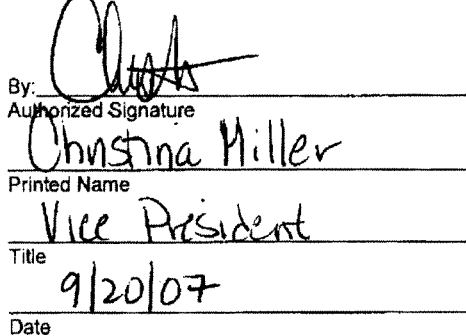 By:
Authorized Signature
Christina Miller
Printed Name
Vice President
Title
9/20/07
Date